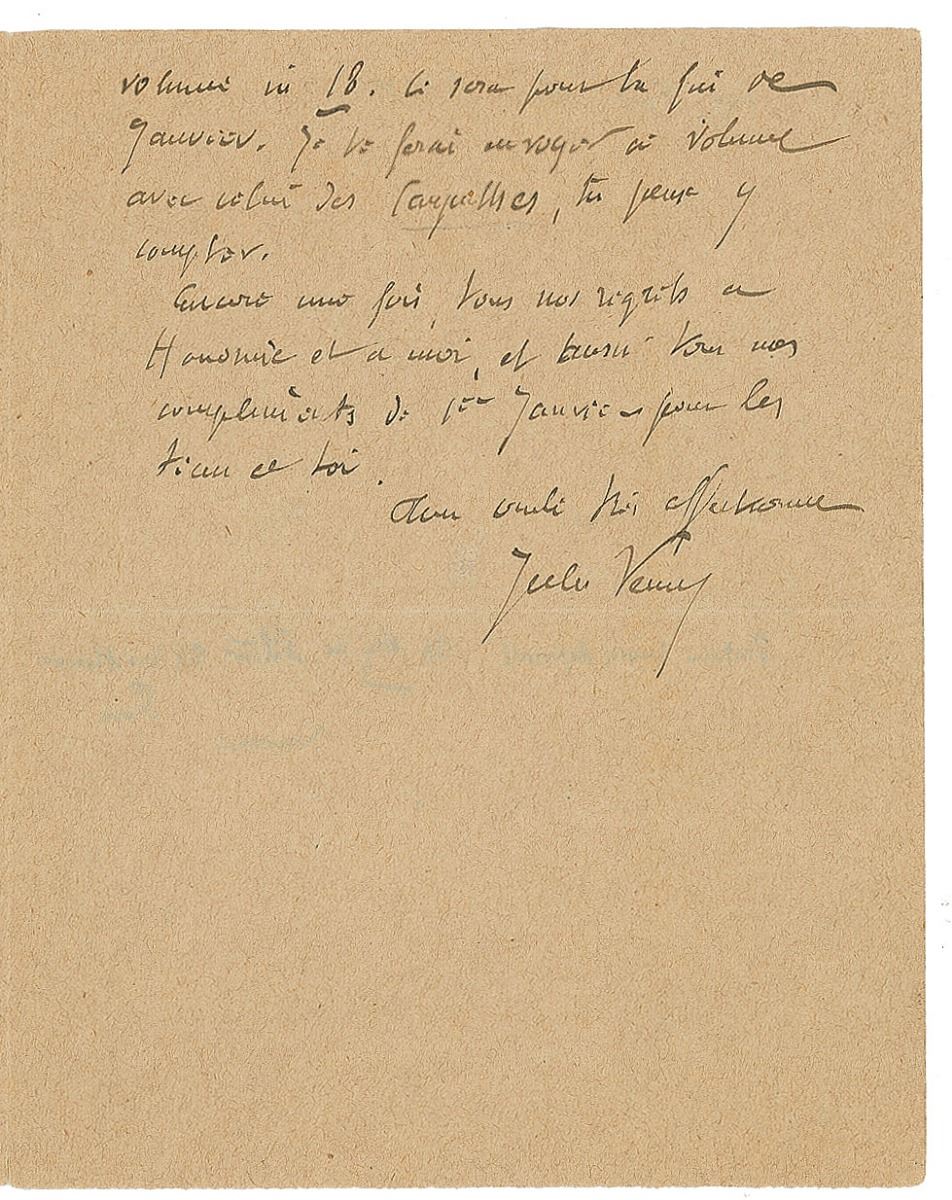 volume in 18. Ce sera pour la fin de
Janvier. Je te ferai envoyer ce volume
avec celui des Carpathes, tu peux y
compter.
Encore une fois, tous nos regrets a
Honorine et a moi, et aussi tous nos
compliments de 1er Janvier pour les
tiens et toi.
Ton oncle très affectionné
Jules Verne